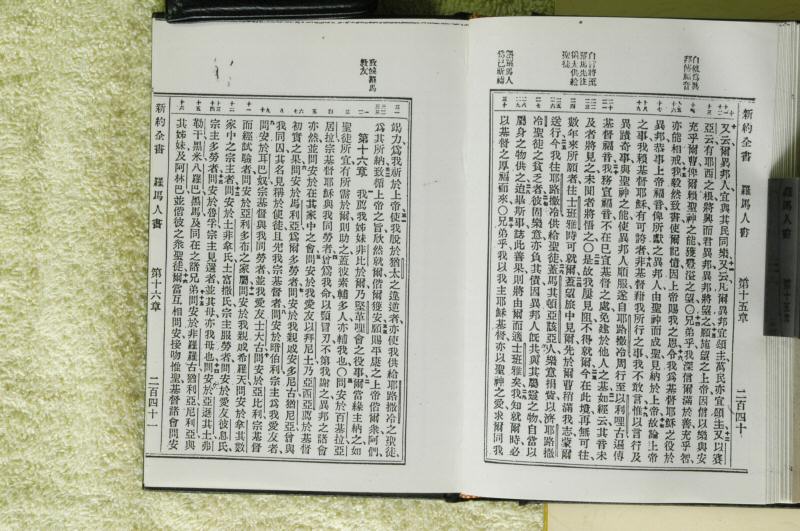 新約全書　羅馬人書　第十五章　二百四十
又云爾異邦人宜與其民同樂又云凡爾異邦宜頌主萬民亦宜頌主又以賽
亞云有耶西之根將興而君異邦異邦將望之願施望之上帝因信以樂與安
充乎爾曹俾爾賴聖神之能獲豐溢之望〇兄弟乎我深信爾滿於善充乎智
亦能相戒我毅然致書使爾記憶因上帝賜我之恩令我為基督耶穌之役於
異邦恭事上帝福音俾所獻之異邦人由聖神而成聖見納於上帝故論上帝
之事我賴基督耶穌有可誇者非基督藉我所行之事我不敢言惟以言行及
異蹟奇事與聖神之能使異邦人順服遂自耶路撒冷周行至以利哩古遍傳
基督福音我務宣福音不在已宣基督之處免建於他人之基如經云其昔未
及者將見之未聞者將悟之〇是故我屢見阻不得就爾今在此境再無可往
數年來所願者往士班雅時可就爾蓋望旅中見爾先於爾曹稍滿我志蒙爾
送行今我往耶路撒冷供給聖徒蓋馬其頓亞該亞人樂意捐貲以濟耶路撒
冷聖徒之貧乏者彼固樂意亦負其債因異邦人既共與其屬靈之物自當以
屬身之物供之迨畢斯事誌此善果則將由爾而適士班雅矣我知就爾時必
以基督之厚福而來〇兄弟乎我以我主耶穌基督亦以聖神之愛求爾同我
致候羅馬教友
竭力為我祈於上帝使我脫於猶太之違逆者亦使我供給耶路撒冷之聖徒
為其所納致循上帝之旨欣然就爾偕爾獲安願賜平康之上帝偕爾衆阿們
第十六章　我薦我姊妹非比於爾乃堅革哩會之役事爾當緣主納之如
聖徒所宜有所需於爾則助之蓋彼素輔多人亦輔我也〇問安於百基拉亞
居拉宗基督耶穌與我同勞者曾為我命以頸冒刃不第我謝之異邦之諸會
亦然並問安於在其家中之會問安於我愛友以拜尼土乃亞西亞薦於基督
初實之果問安於馬利亞為爾多勞者問安於我親戚安多尼古猶尼亞曾與
我同囚其名見稱於使徒且先我宗基督者問安於暗伯利宗主為我愛友者
問安於耳巴奴宗基督與我同勞者並我愛友士大古問安於亞比利宗基督
而經試驗者問安於亞利多布之家屬問安於我親戚希羅天問安於拿其數
家中之宗主者問安於土非拿氏土富撒氏宗主服勞者問安於愛友彼息氏
宗主多勞者問安於魯孚宗主見選者並其母亦我母也問安於亞遜其土弗
勒干黑米八羅巴黑馬及同在之諸兄弟問安於非羅羅古猶利亞尼利亞與
其姊妹及阿林巴並偕彼之衆聖徒爾當互相問安接吻惟聖基督諸會問安
新約全書　羅馬人書　第十六章　二百四十一